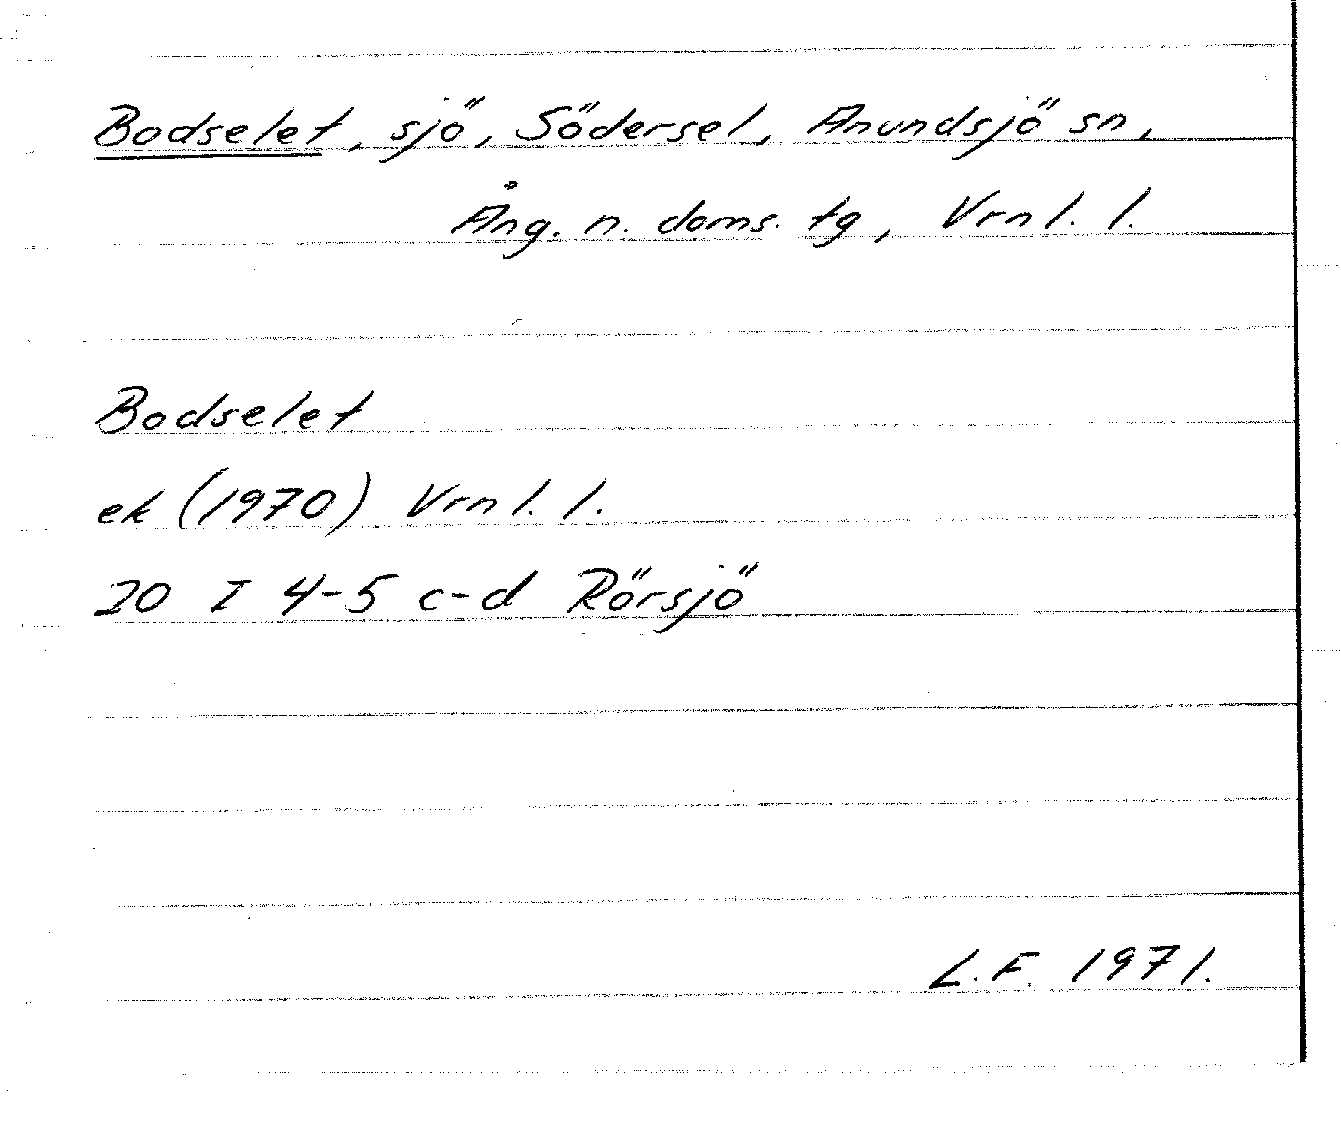 Bodselet, sjö, Södersel, Anundsjö sn,
Ång. n. doms. tg, Vrnl. l.
Bodselet
ek (1970) Vrnl. l.
20 I 4-5 c-d Rörsjö
L.F. 1971.